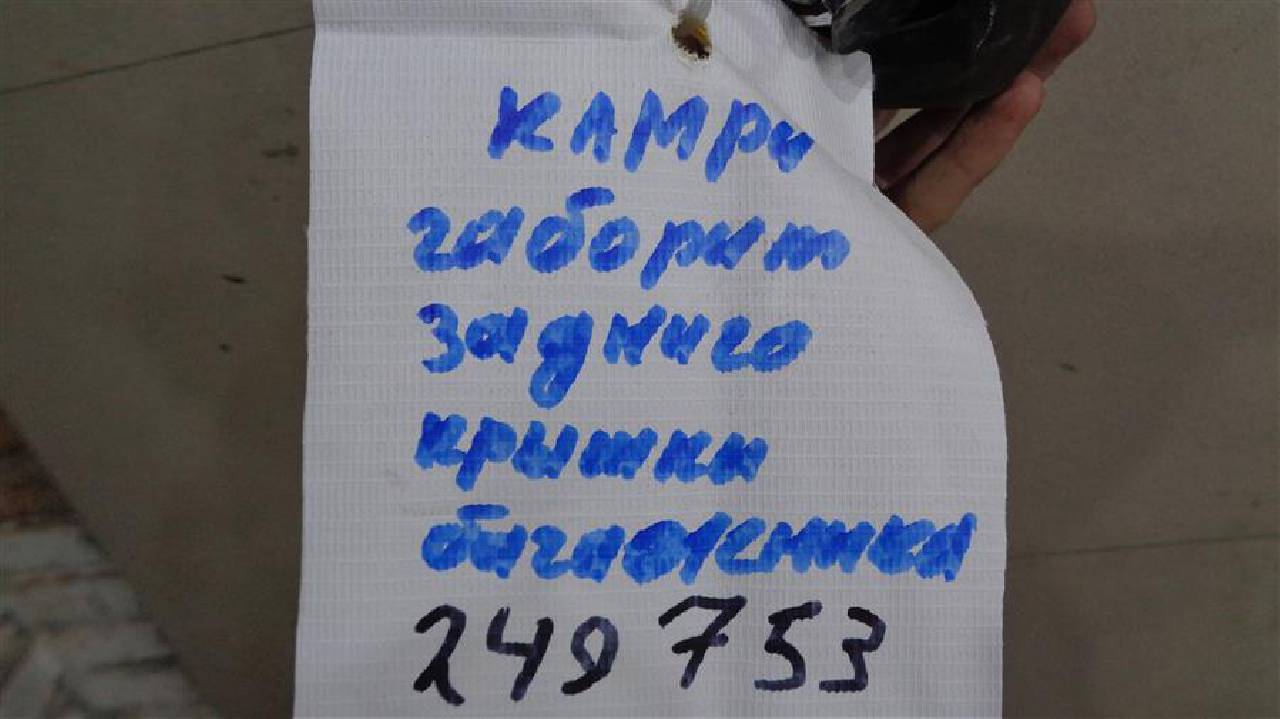 КАМРИ
габорит
задниго
крышки
багажника
249 753